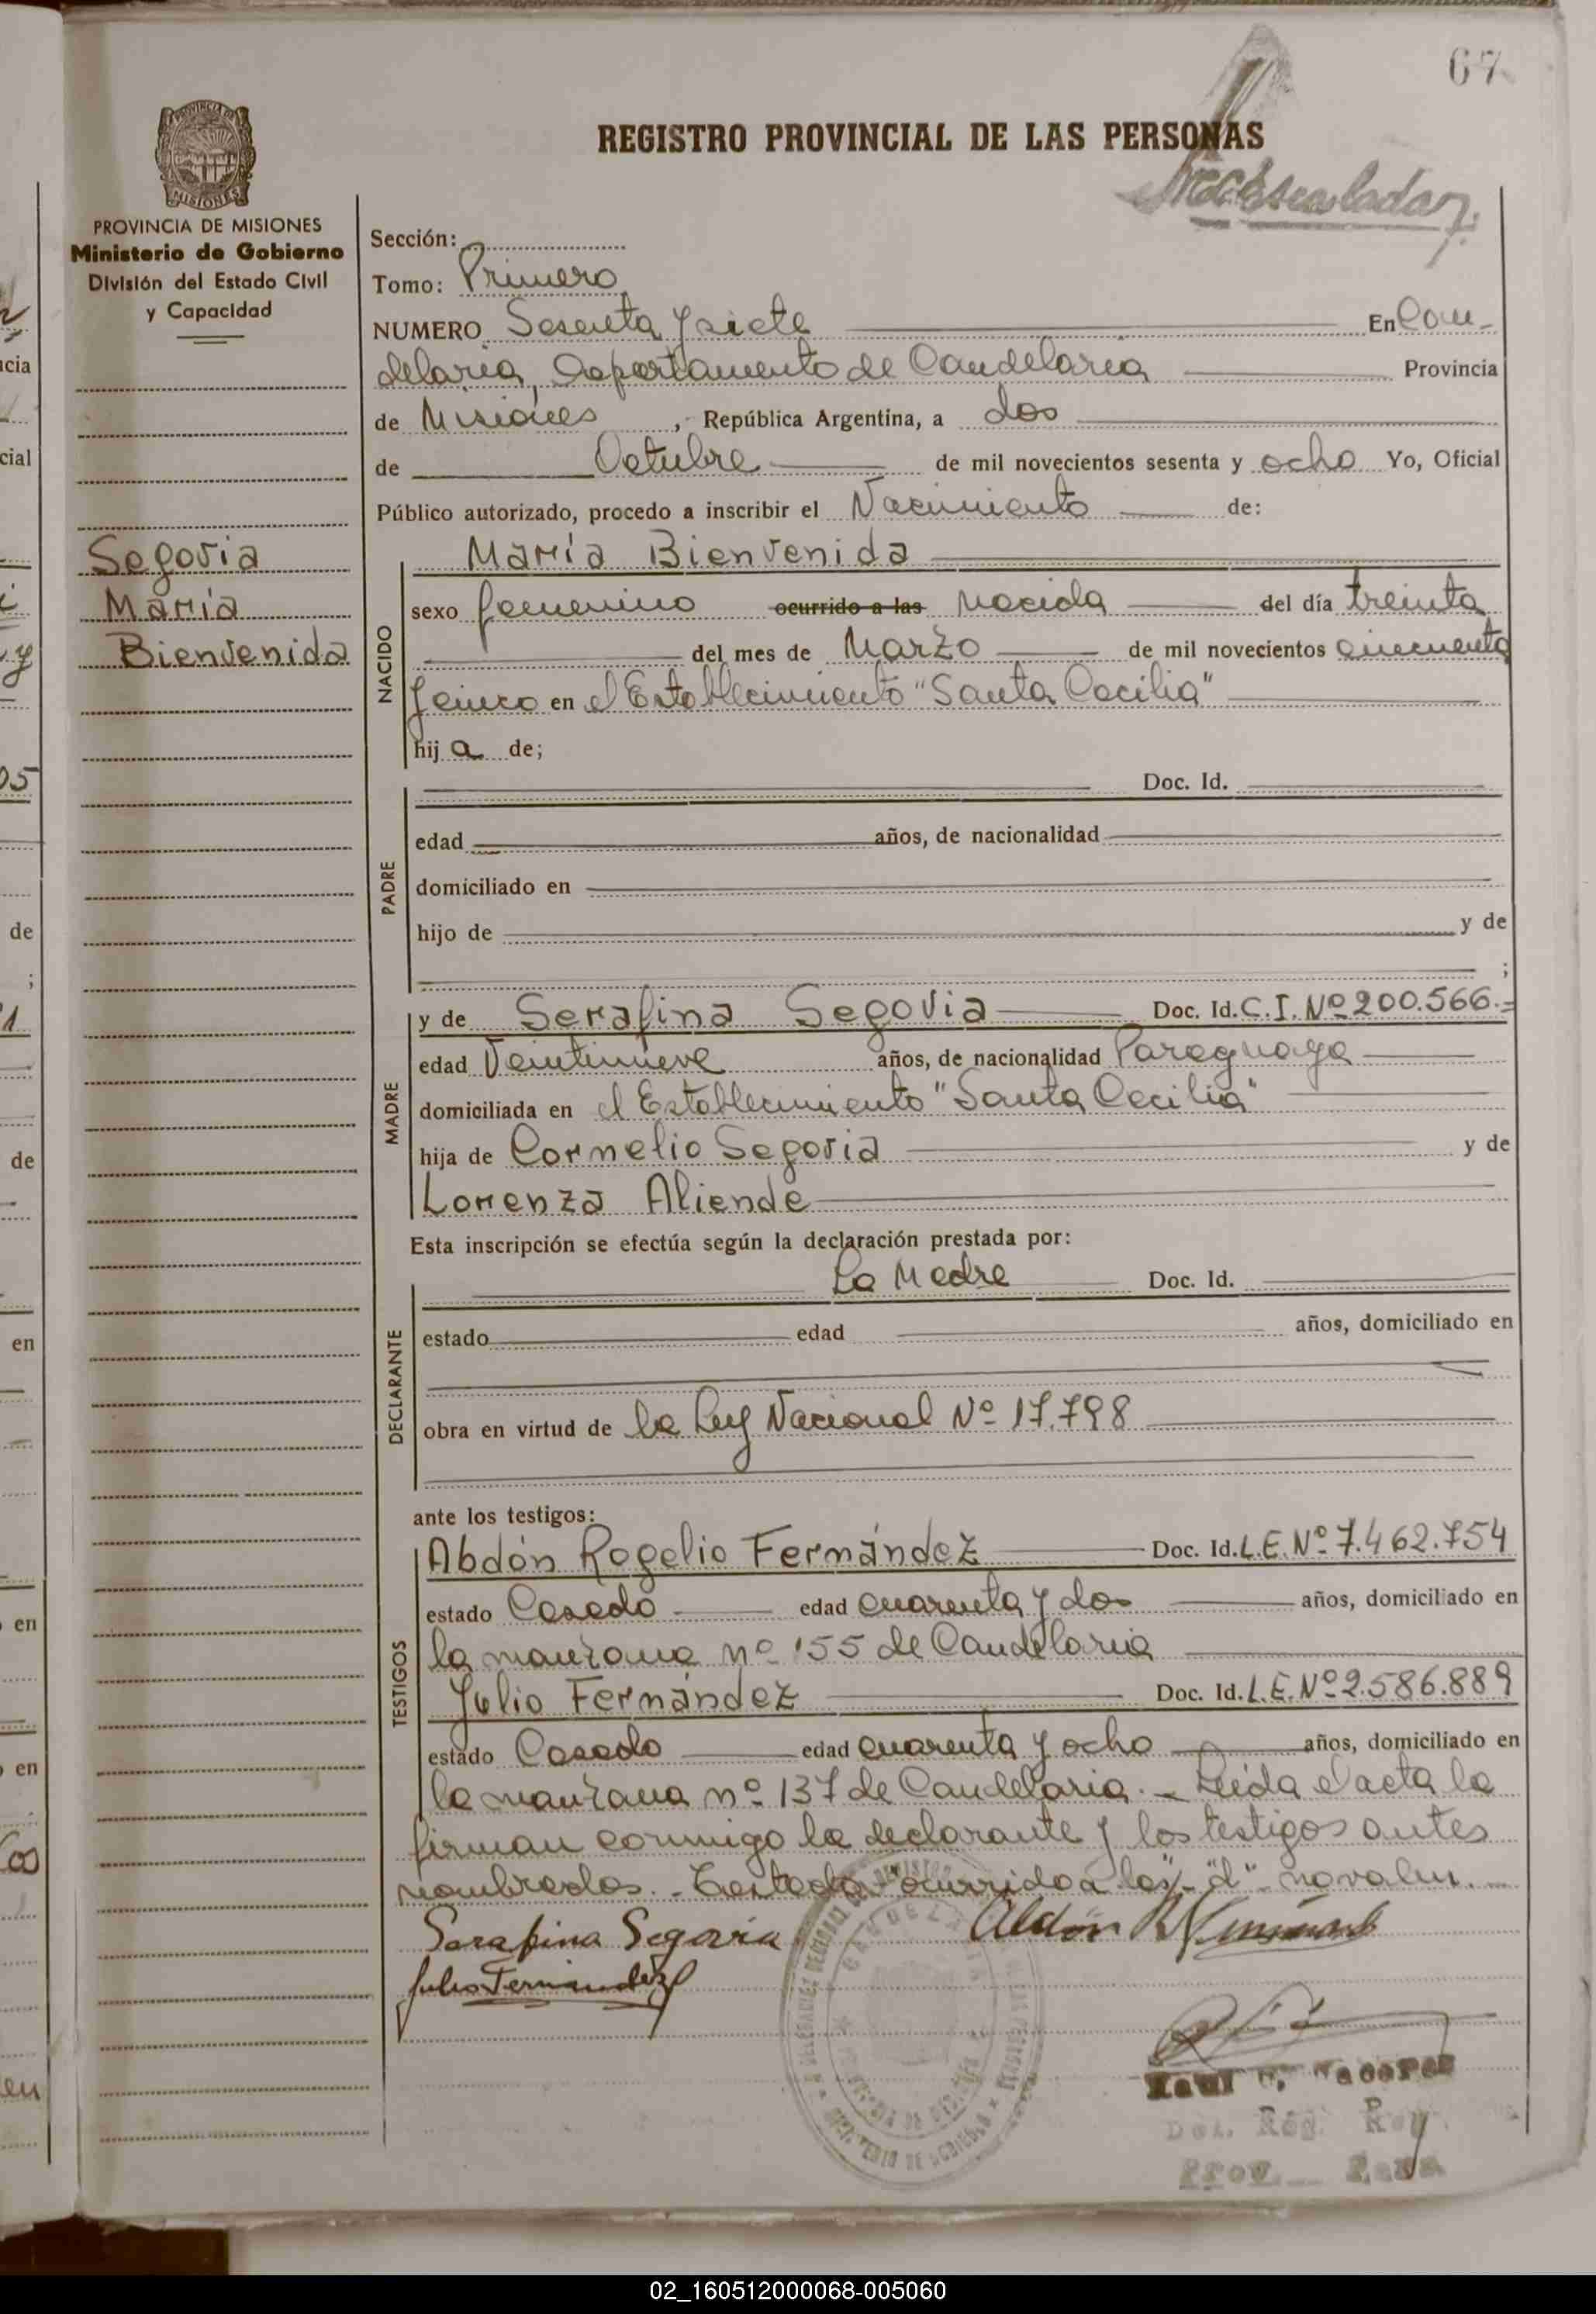 67
REGISTRO PROVINCIAL DE LAS PERSONAS
PROVINCIA DE
MISIONES
PROVINCIA DE MISIONES
Ministerio de Gobierno
División del Estado Civil
y Capacidad
Segovia
María
Bienvenida
Sección:
Tomo: Primero
NUMERO Sesenta y siete En Can-
delaria, Departamento de Candelaria Provincia
de Misiones, República Argentina, a dos
de Octubre de mil novecientos sesenta y ocho Yo, Oficial
Público autorizado, procedo a inscribir el Nacimiento de:
NACIDO
María Bienvenida
sexo femenino ocurrido a las nacida del día treinta
del mes de Marzo de mil novecientos cincuenta
y cinco en el Establecimiento "Santa Cecilia"
hij a de;
PADRE
Doc. Id.
edad años, de nacionalidad
domiciliado en
hijo de y de
;
MADRE
y de Serafina Segovia Doc. Id. C.I. Nº 200.566.=
edad Veintinueve años, de nacionalidad Paraguaya
domiciliada en el Establecimiento "Santa Cecilia"
hija de Cornelio Segovia y de
Lorenza Aliende
Esta inscripción se efectúa según la declaración prestada por:
DECLARANTE
La Madre Doc. Id.
estado edad años, domiciliado en
obra en virtud de la Ley Nacional Nº 17.798
ante los testigos:
TESTIGOS
Abdón Rogelio Fernández Doc. Id. L.E. Nº 7.462.754
estado Casado edad cuarenta y dos años, domiciliado en
la manzana nº 155 de Candelaria
Julio Fernández Doc. Id. L.E. Nº 2.586.889
estado Casado edad cuarenta y ocho años, domiciliado en
la manzana nº 137 de Candelaria.- Leída el acta la
firman conmigo la declarante y los testigos antes
nombrados.- Testado: "ocurrido a las" - "d" - no valen.
Serafina Segovia
Julio Fernández
02_160512000068-005060